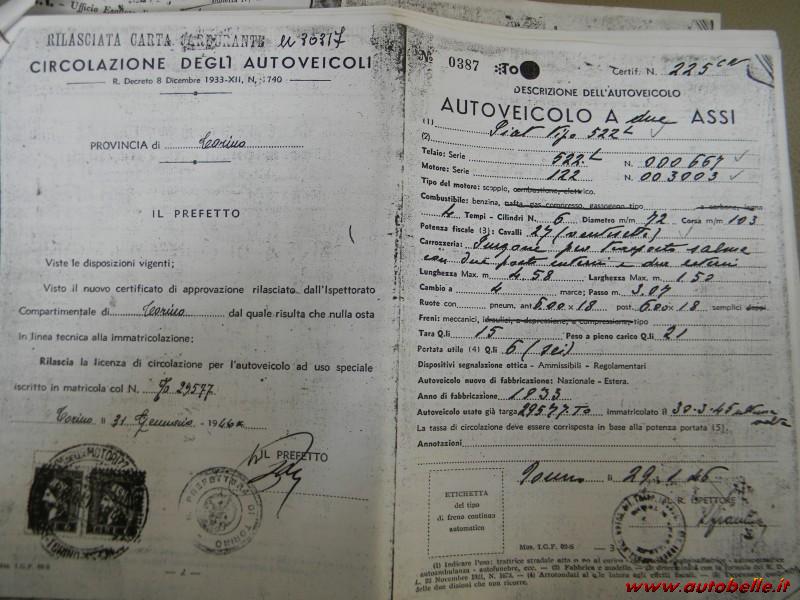 RILASCIATA CARTA CARBURANTE N 30317
CIRCOLAZIONE DEGLI AUTOVEICOLI
R. Decreto 8 Dicembre 1933-XII, N. 1740
PROVINCIA di Torino
IL PREFETTO
Viste le disposizioni vigenti;
Visto il nuovo certificato di approvazione rilasciato dall'Ispettorato
Compartimentale di Torino dal quale risulta che nulla osta
in linea tecnica alla immatricolazione;
Rilascia la licenza di circolazione per l'autoveicolo ad uso speciale
iscritto in matricola col N. To 29577
Torino li 31 Gennaio 1946
IL PREFETTO
PREFETTURA DI TORINO
Mod. I.G.F. 02-S
- 2 -
No 0387 To Certif. N. 225
DESCRIZIONE DELL'AUTOVEICOLO
AUTOVEICOLO A due ASSI
(1)
(2) Fiat tipo 522 L
Telaio: Serie 522.L N. 000667
Motore: Serie 122 N. 003003
Tipo del motore: scoppio, combustione, elettrico.
Combustibile: benzina, nafta, gas compresso, gasogeno tipo a carbone, legna
4 Tempi - Cilindri N. 6 Diametro m/m 72 Corsa m/m 103
Potenza fiscale (3): Cavalli 27 (ventisette)
Carrozzeria: Furgone per trasporto salme
con due posti interni e due esterni
Lunghezza Max. m 4.58 Larghezza Max. m 1.50
Cambio a 4 marce; Passo m 3.07
Ruote con pneum. ant. 5.00 x 18 post. 6.00 x 18 semplici
Freni: meccanici, idraulici, a depressione, a compressione, tipo
Tara Q.li 15 Peso a pieno carico Q.li 21
Portata utile (4) Q.li 6 (sei)
Dispositivi segnalazione ottica - Ammissibili - Regolamentari
Autoveicolo nuovo di fabbricazione: Nazionale - Estera.
Anno di fabbricazione 1933
Autoveicolo usato già targa 29577 To immatricolato il 30-3-45 ultima volta
La tassa di circolazione deve essere corrisposta in base alla potenza portata (5).
Annotazioni
ETICHETTA
del tipo
di freno continuo
automatico
Torino li 29.1.46
IL R. ISPETTORE
Mod. I.G.F. 02-S - 3
www.autobelle.it